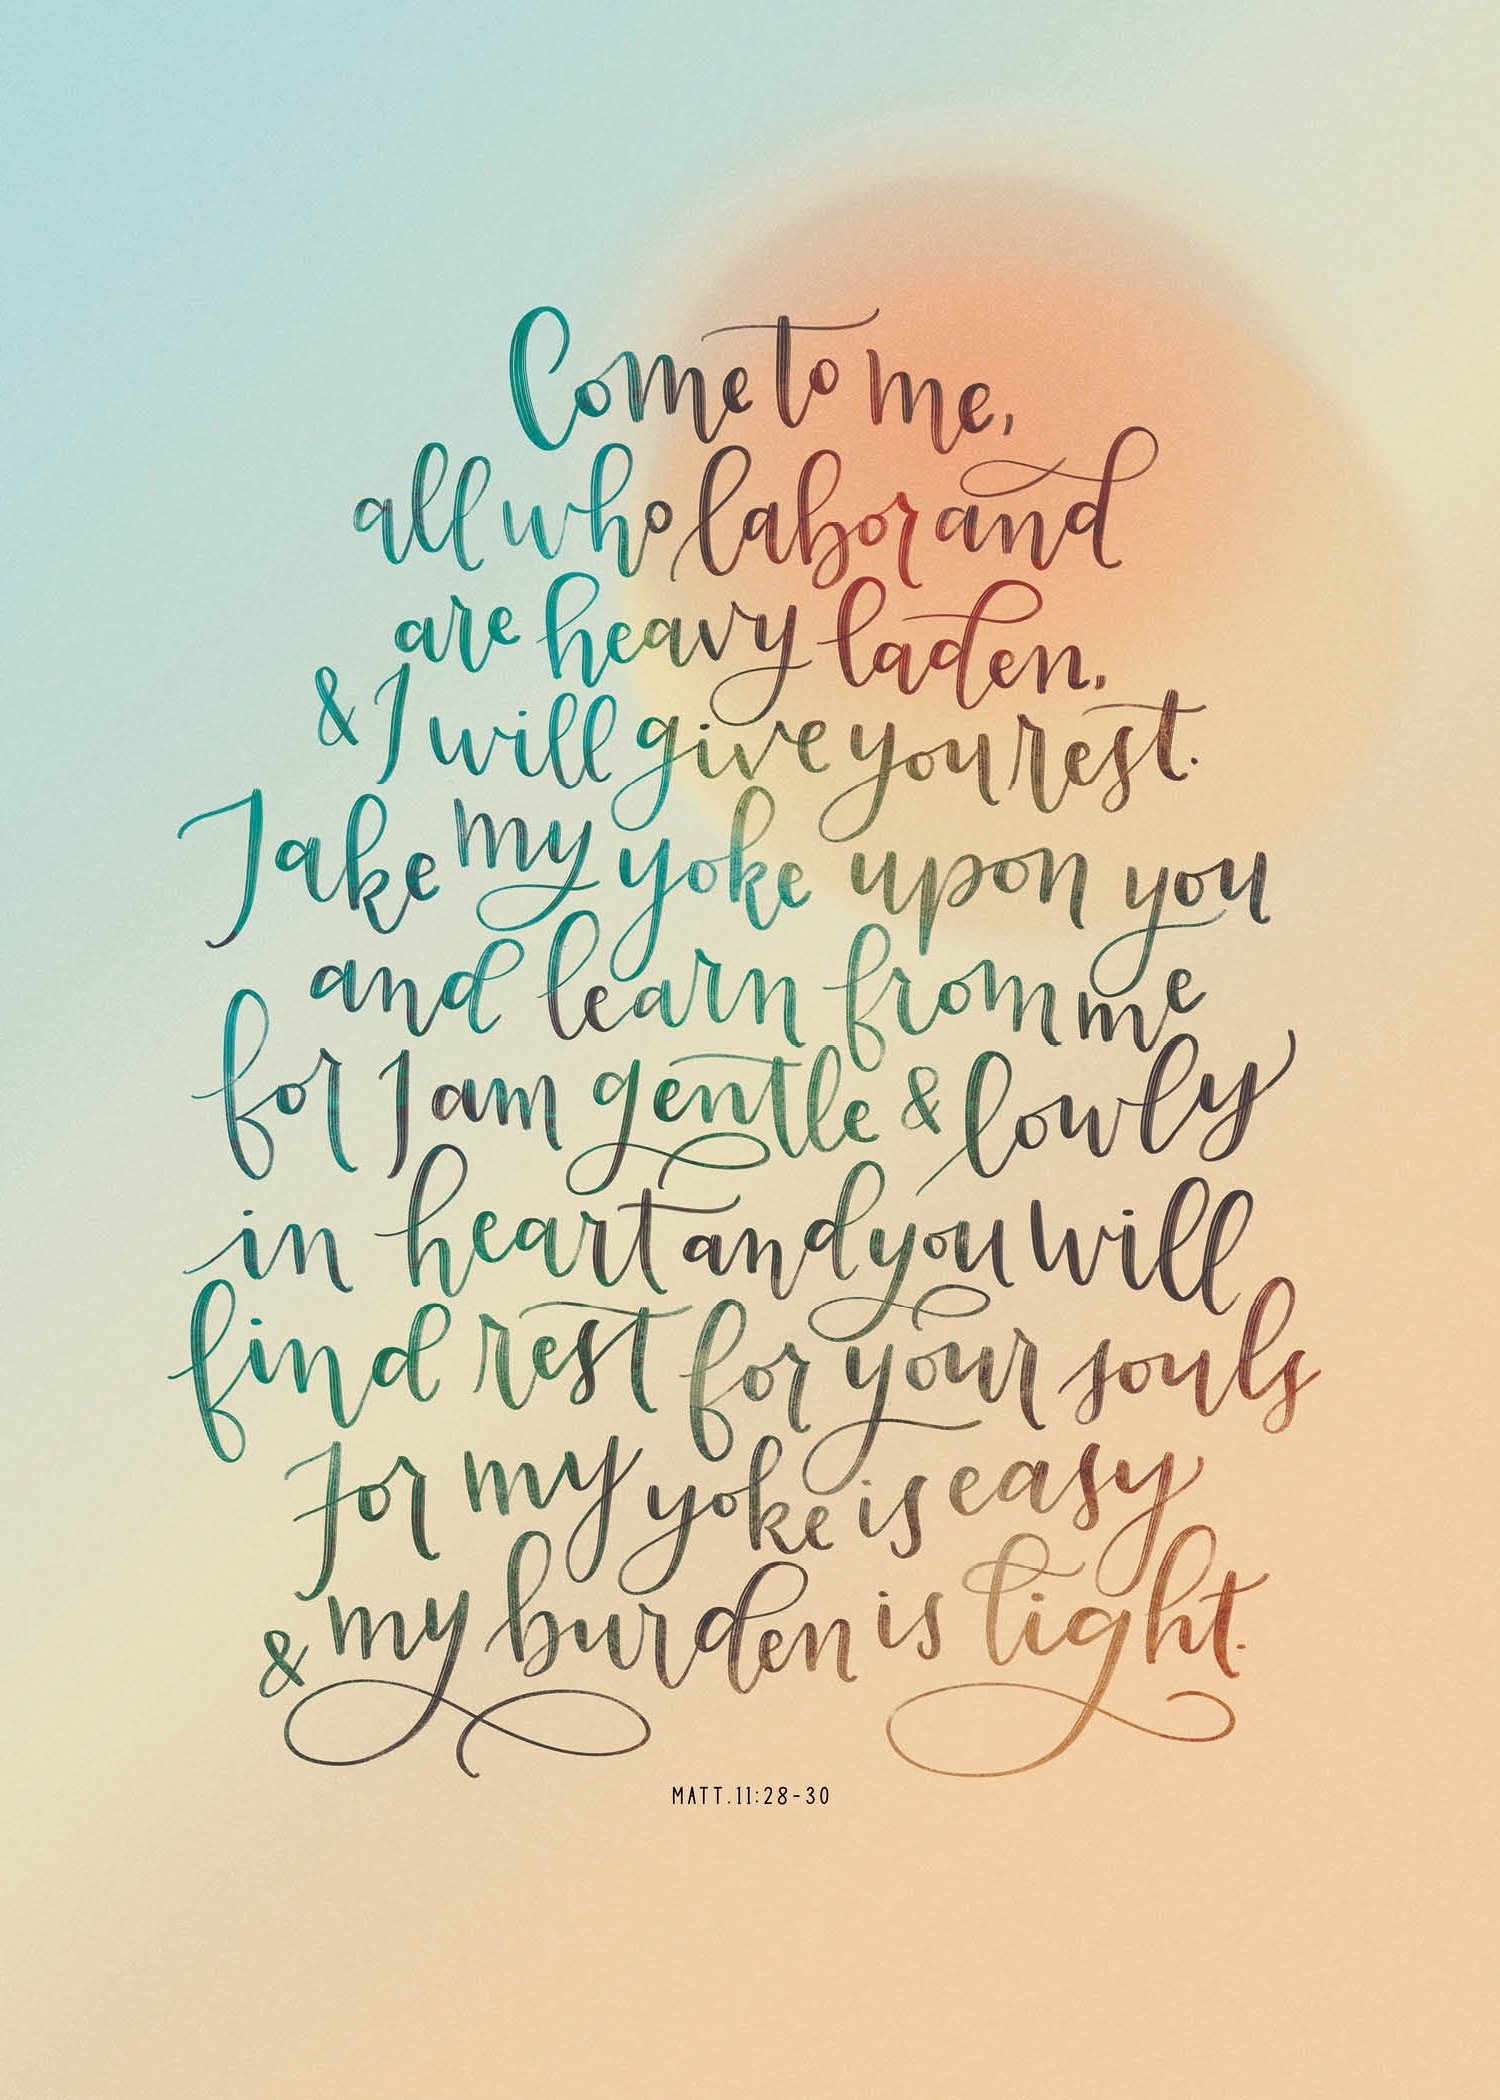 Come to me,
all who labor and
are heavy laden,
& I will give you rest.
Take my yoke upon you
and learn from me
for I am gentle & lowly
in heart and you will
find rest for your souls
For my yoke is easy
& my burden is light.
MATT.11:28-30